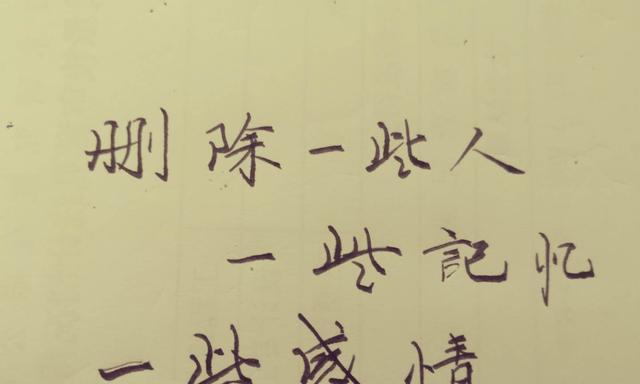 删除一些人
一些記忆
一些感情